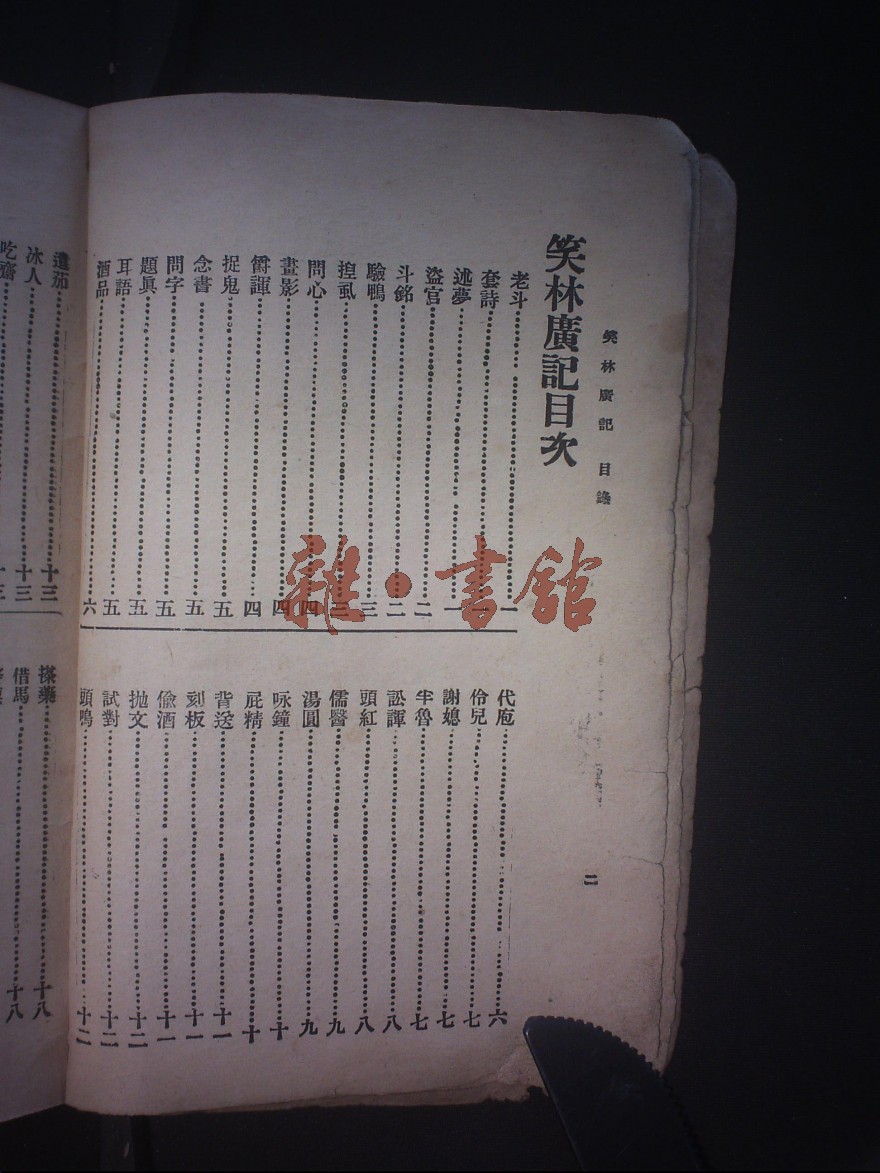 笑林廣記 目錄
二
笑林廣記目次
老斗 一
套詩 一
述夢 一
盜官 二
斗銘 二
驗鴨 三
揑虱 三
問心 四
畫影 四
爵諢 四
捉鬼 五
念書 五
問字 五
題眞 五
耳語 五
酒品 六
代庖 六
伶兒 七
謝媳 七
芈魯 七
訟諢 八
頭紅 八
儒醫 九
湯圓 九
咏鐘 十
屁精 十
背送 十一
刻板 十一
偸酒 十一
抛文 十二
試對 十二
頭鴨 十二
遺茄 十三
冰人 十三
吃齋 十三
搽藥 十八
借馬 十八
雜·書館